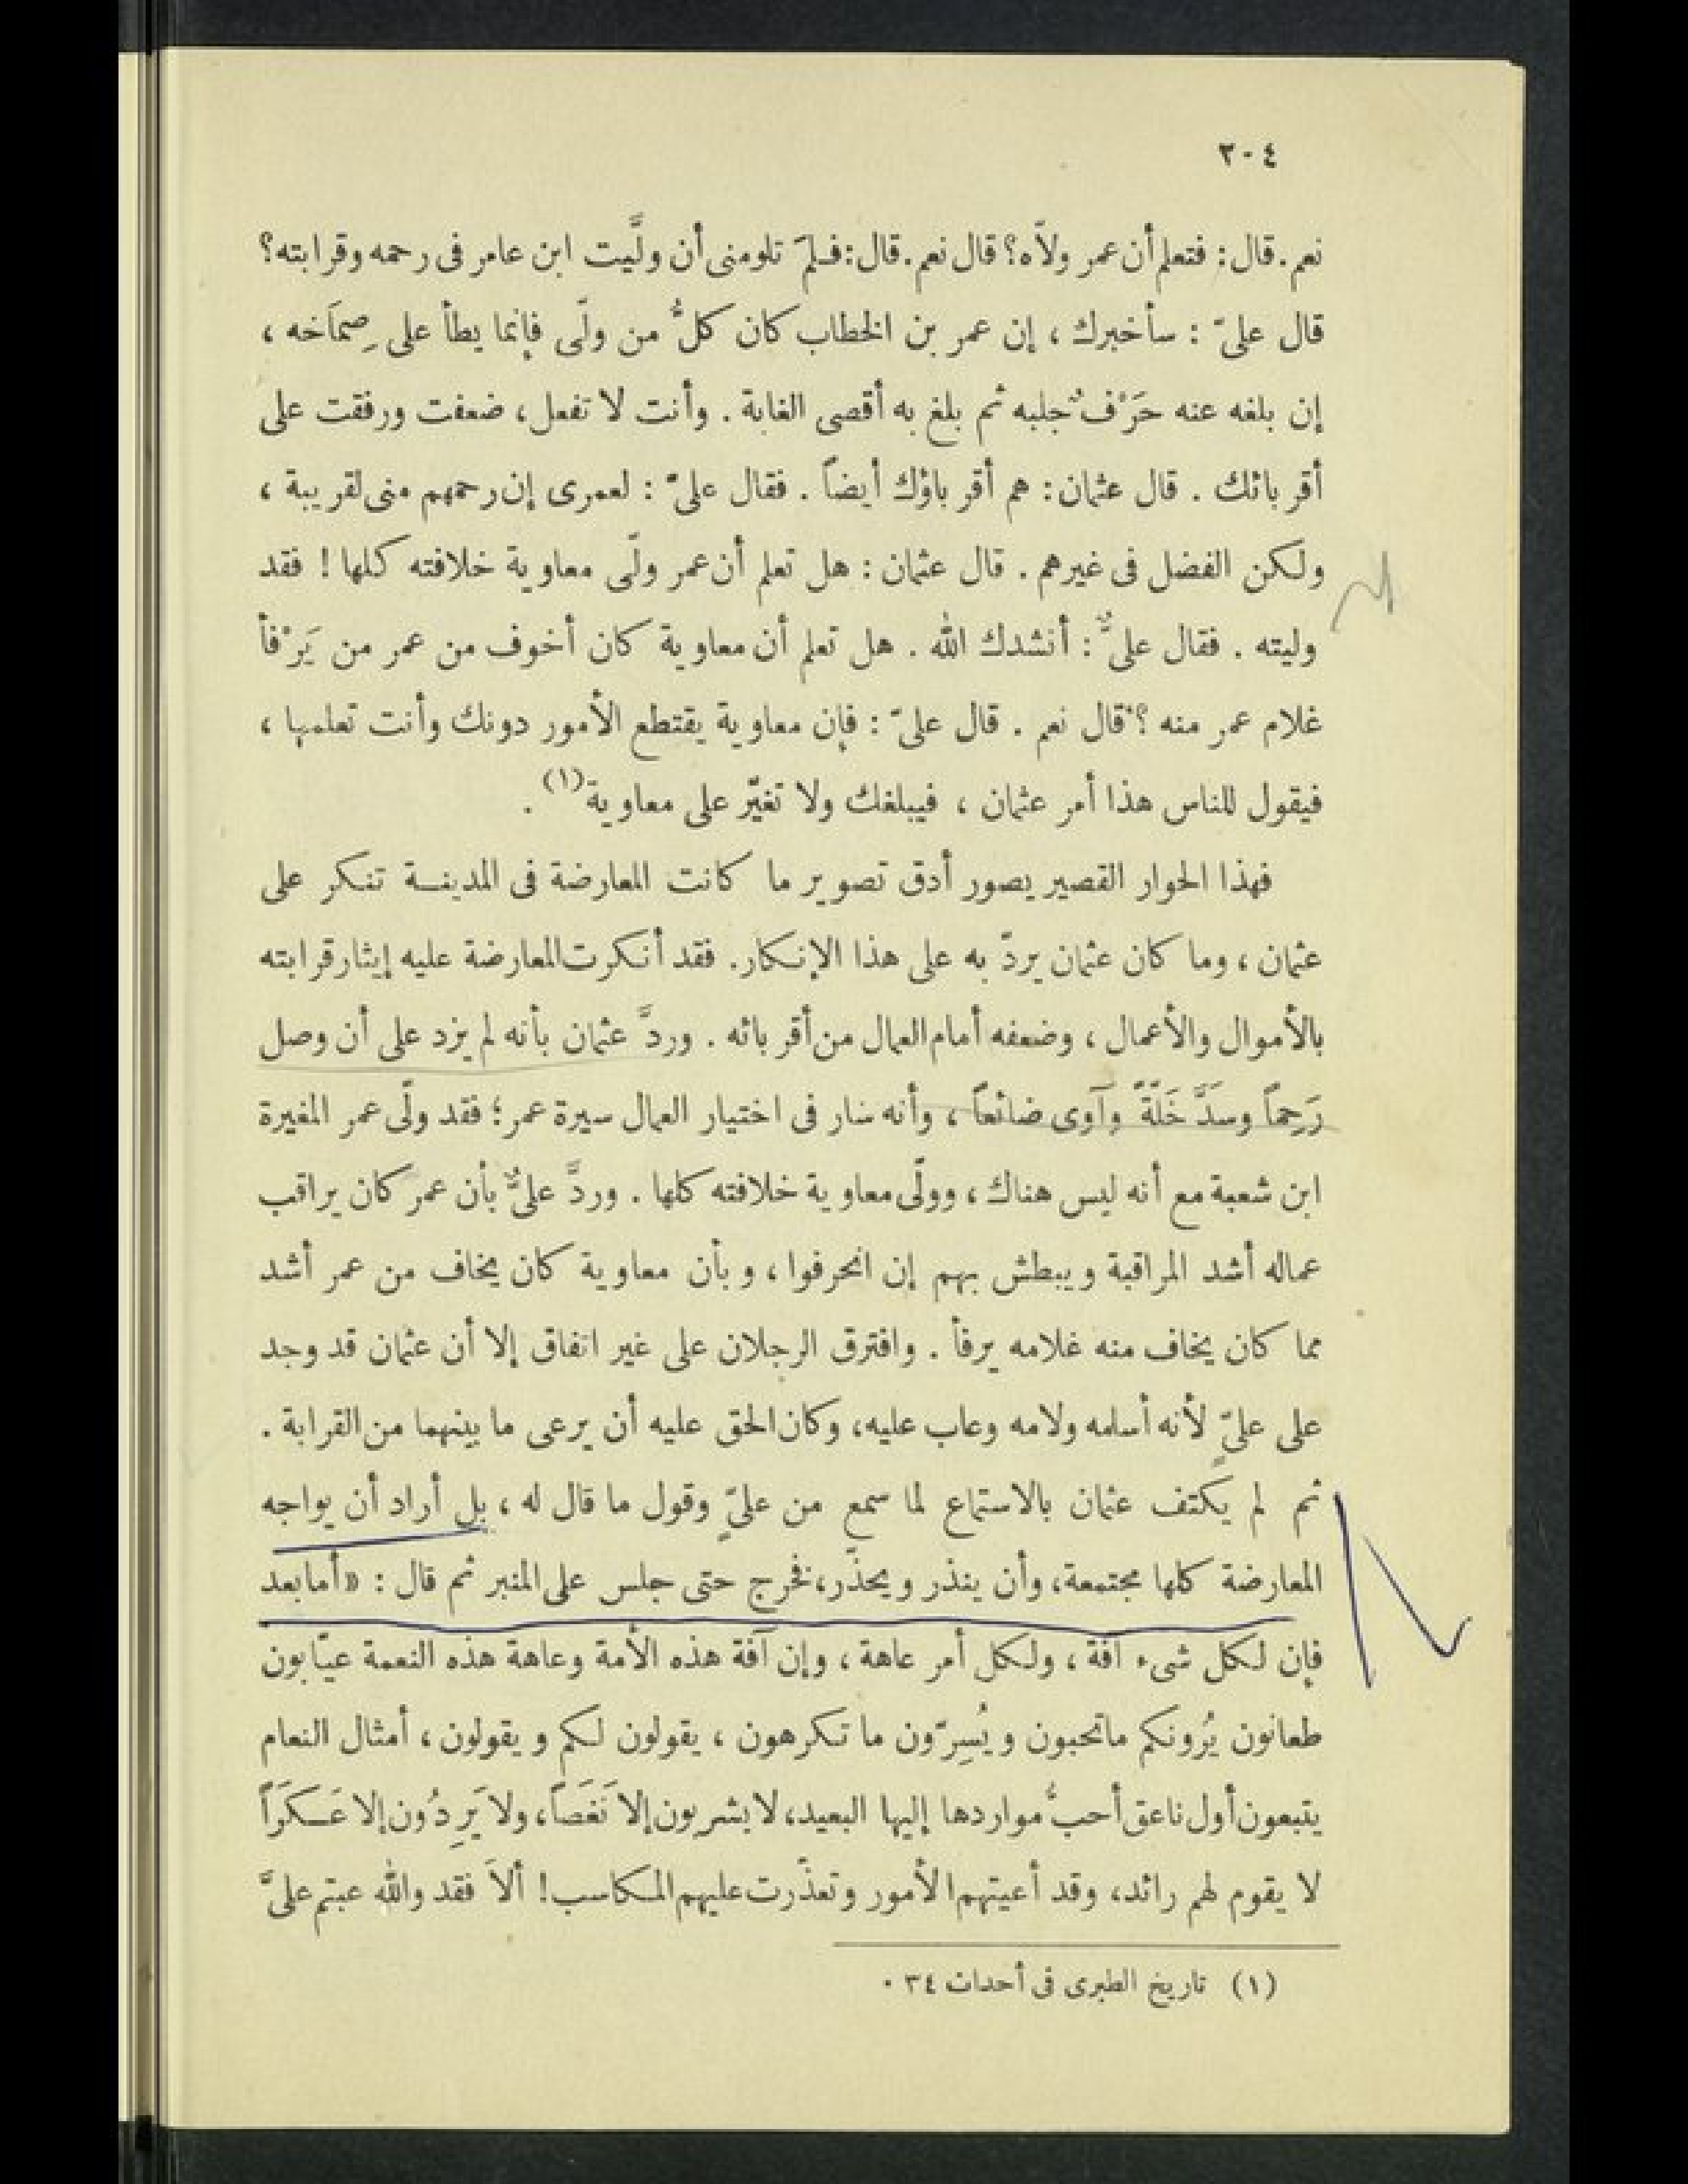 ٢٠٤
نعم. قال: فتعلم أن عمر ولاّه؟ قال نعم. قال: فلمَ تلومنى أن ولَّيت ابن عامر فى رحمه وقرابته؟
قال علىّ : سأخبرك ، إن عمر بن الخطاب كان كلُّ من ولّى فإنما يطأ على صِمَاخه ،
إن بلغه عنه حَرْفٌ جلبه ثم بلغ به أقصى الغاية . وأنت لا تفعل، ضعفت ورفقت على
أقربائك . قال عثمان : هم أقرباؤك أيضاً . فقال علىّ : لعمرى إن رحمهم منى لقريبة ،
ولكن الفضل فى غيرهم . قال عثمان : هل تعلم أن عمر ولّى معاوية خلافته كلها ! فقد
وليته . فقال علىٌّ : أنشدك الله . هل تعلم أن معاوية كان أخوف من عمر من يَرْفأ
غلام عمر منه ؟ قال نعم . قال علىّ : فإن معاوية يقتطع الأمور دونك وأنت تعلمها ،
فيقول للناس هذا أمر عثمان ، فيبلغك ولا تغيّر على معاوية (١) .
فهذا الحوار القصير يصور أدق تصوير ما كانت المعارضة فى المدينة تنكر على
عثمان ، وما كان عثمان يردّ به على هذا الإنكار. فقد أنكرت المعارضة عليه إيثار قرابته
بالأموال والأعمال ، وضعفه أمام العمال من أقربائه . وردَّ عثمان بأنه لم يزد على أن وصل
رَحِماً وسَدَّ خَلّةً وآوى ضائعاً ، وأنه سار فى اختيار العمال سيرة عمر؛ فقد ولّى عمر المغيرة
ابن شعبة مع أنه ليس هناك ، وولّى معاوية خلافته كلها . وردَّ علىٌّ بأن عمر كان يراقب
عماله أشد المراقبة ويبطش بهم إن انحرفوا ، وبأن معاوية كان يخاف من عمر أشد
مما كان يخاف منه غلامه يرفأ . وافترق الرجلان على غير اتفاق إلا أن عثمان قد وجد
على علىّ لأنه أسلمه ولامه وعاب عليه، وكان الحق عليه أن يرعى ما بينهما من القرابة .
ثم لم يكتف عثمان بالاستماع لما سمع من علىّ وقول ما قال له ، بل أراد أن يواجه
المعارضة كلها مجتمعة، وأن ينذر ويحذّر، فخرج حتى جلس على المنبر ثم قال : «أما بعد
فإن لكل شىء آفة ، ولكل أمر عاهة ، وإن آفة هذه الأمة وعاهة هذه النعمة عيّابون
طعانون يُرونكم ما تحبون ويُسِرّون ما تكرهون ، يقولون لكم ويقولون ، أمثال النعام
يتبعون أول ناعق أحبُّ مواردها إليها البعيد، لا يشربون إلا نَغَصاً، ولا يَرِدُون إلا عَكَراً
لا يقوم لهم رائد، وقد أعيتهم الأمور وتعذّرت عليهم المكاسب! ألاَ فقد والله عبتم علىَّ
(١) تاريخ الطبرى فى أحداث ٣٤ .